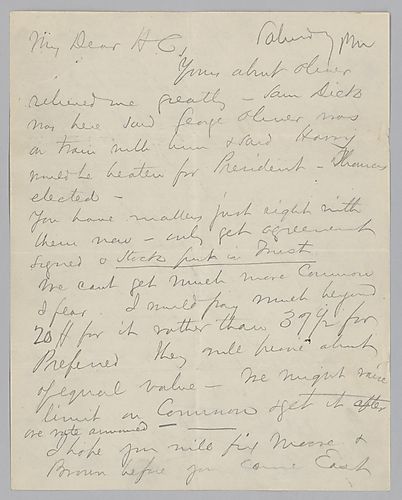 My Dear H C,
Saturday
Yours about Oliver
relieved me greatly – Sam Dick
was here said George Oliver was
on train with him & said Harry
would be beaten for President – Thomas
elected –
You have matters just right with
them now – only get agreement
signed & Stock put in Trust
We cant get much more Common
I fear. I would pay much beyond
20 for it rather than 39½ for
Preferred they will prove about
of equal value – We might raise
limit on Common & get it after
are vote announced –
I hope you will fix Moore &
Brown before you come East